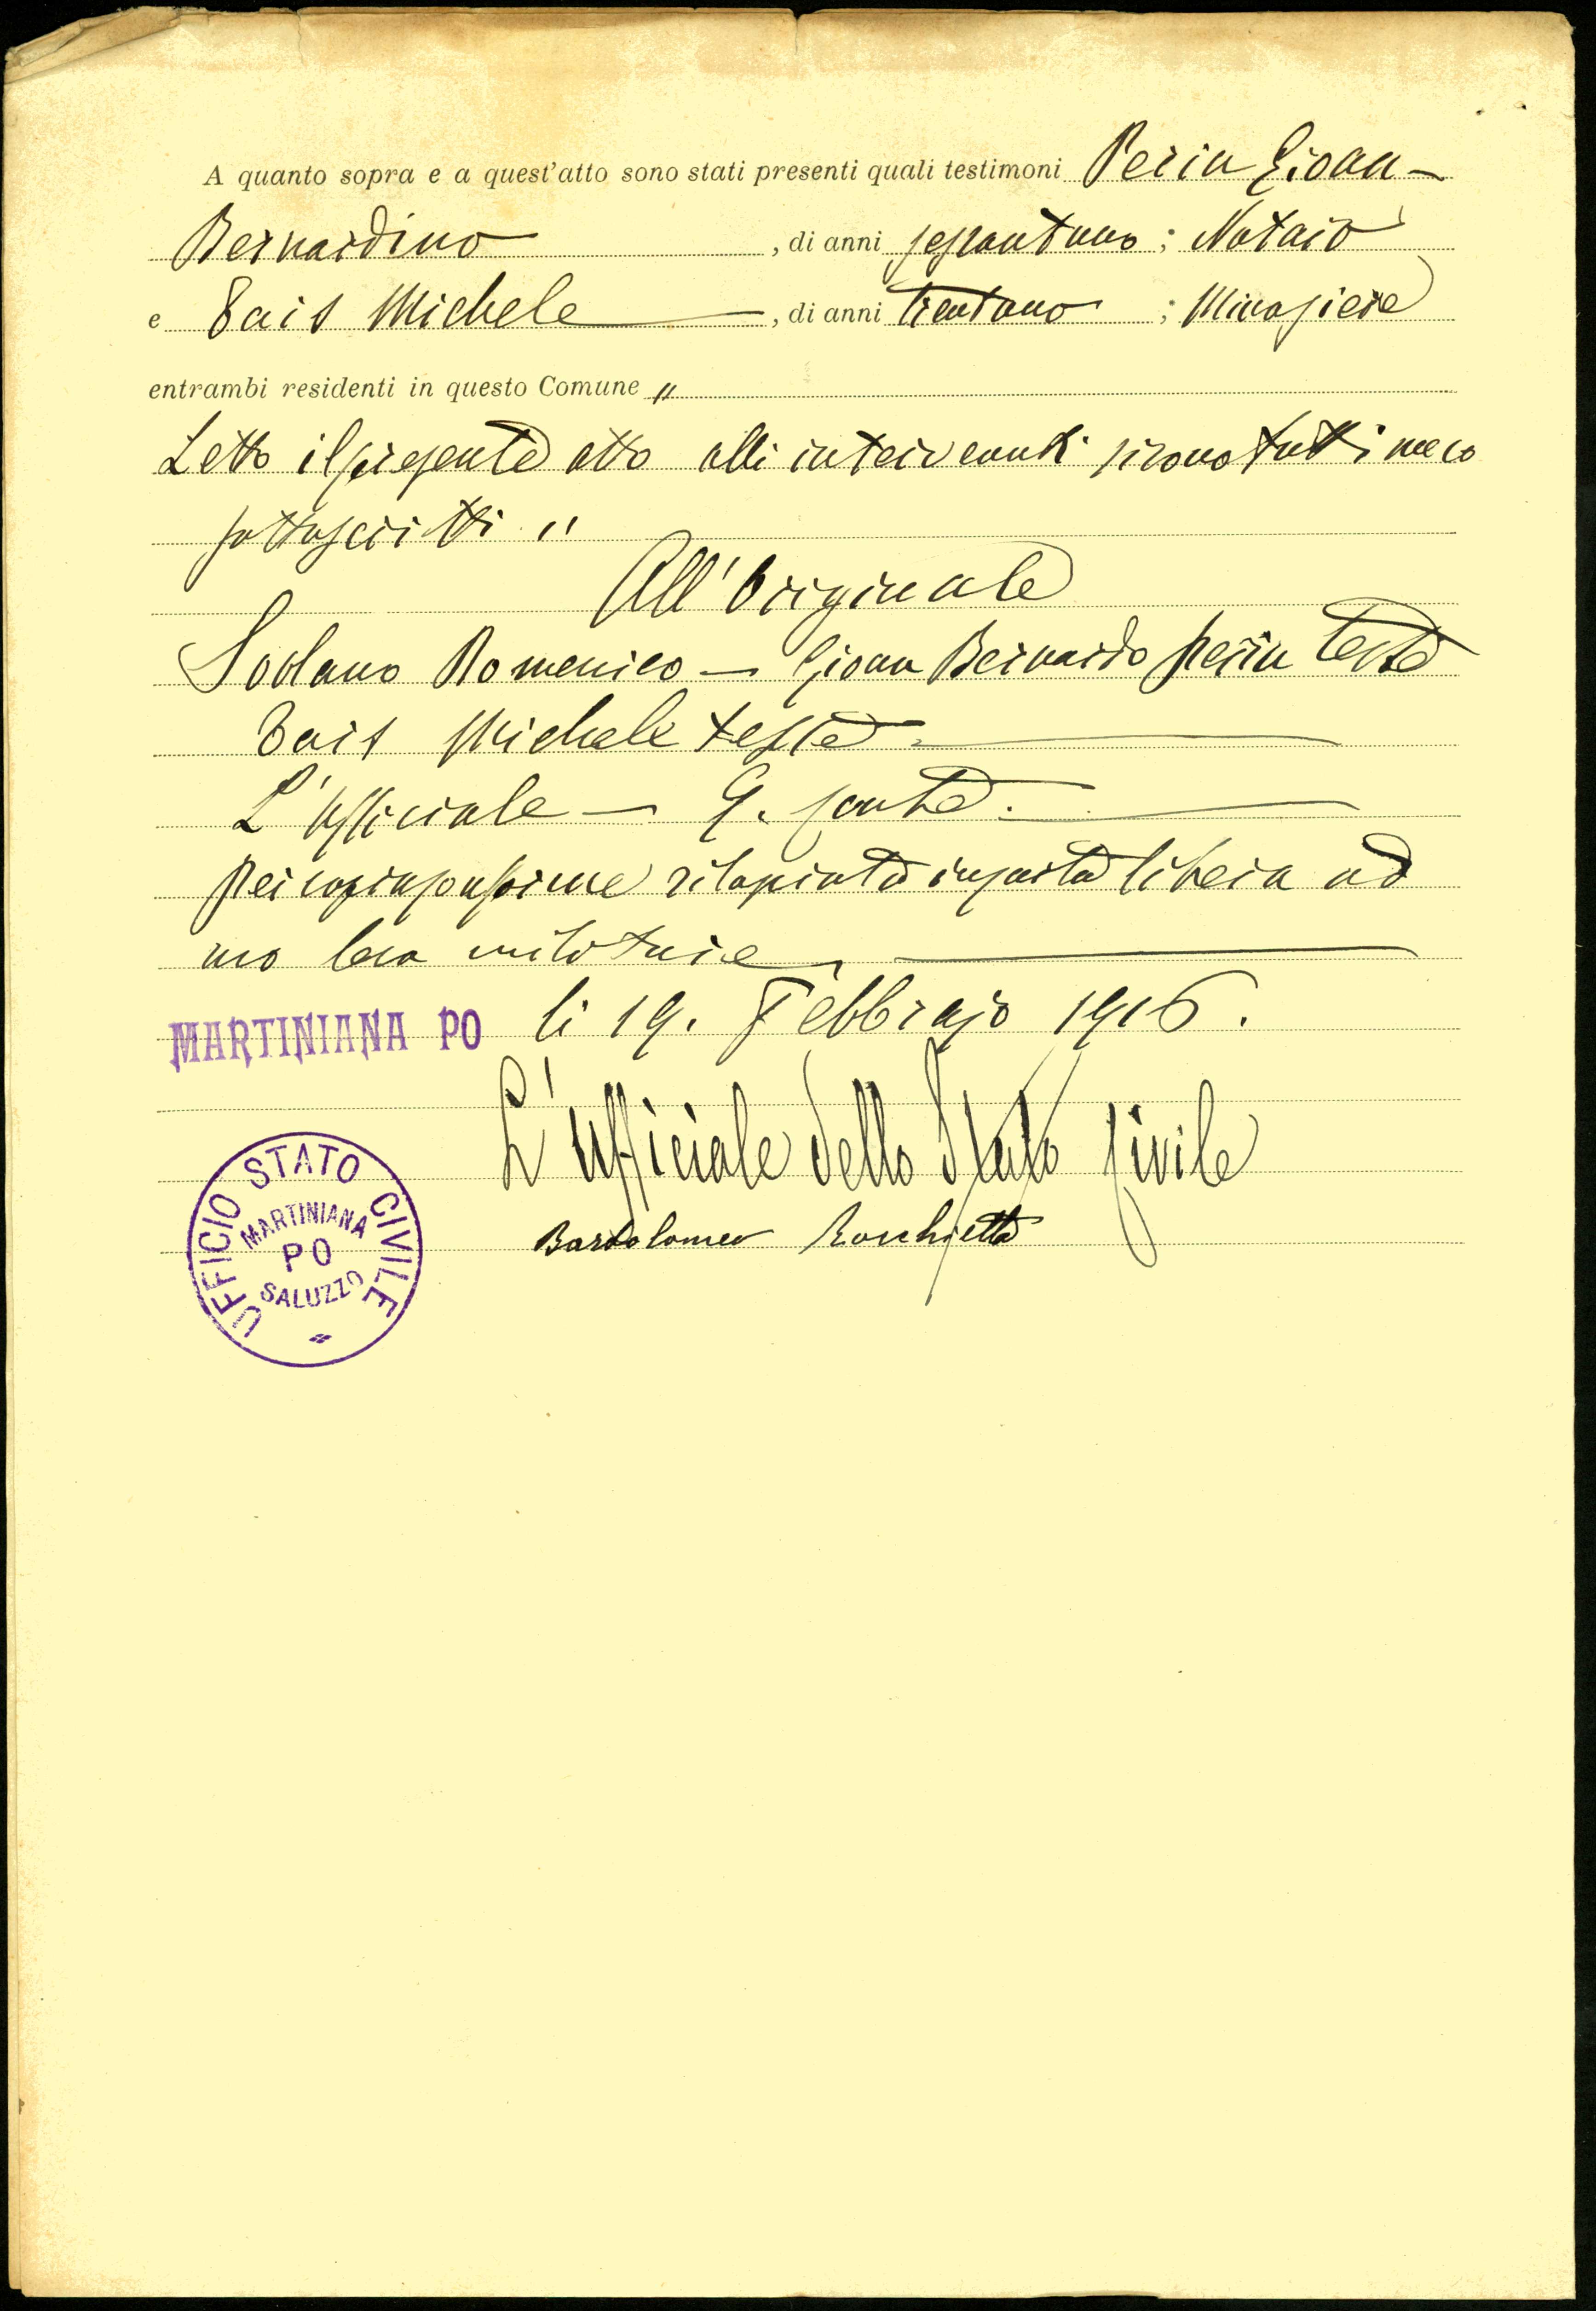 A quanto sopra e a quest'atto sono stati presenti quali testimoni Perin Gioan-
Bernardino, di anni sessantuno; Notaio
e Bais Michele, di anni trentuno; Minusiere
entrambi residenti in questo Comune "
Letto il presente atto alli intervenuti si sono tutti meco
sottoscritti "
All'Originale
Domenico — Gioan Bernardo Perin teste
Bais Michele teste
L'Ufficiale — G. Conte.
Per copia conforme rilasciata in carta libera ad
uso leva militare
MARTINIANA PO li 19. Febbrajo 1916.
L'Ufficiale dello Stato Civile
Bartolomeo Rocchietta
UFFICIO STATO CIVILE
MARTINIANA
PO
SALUZZO